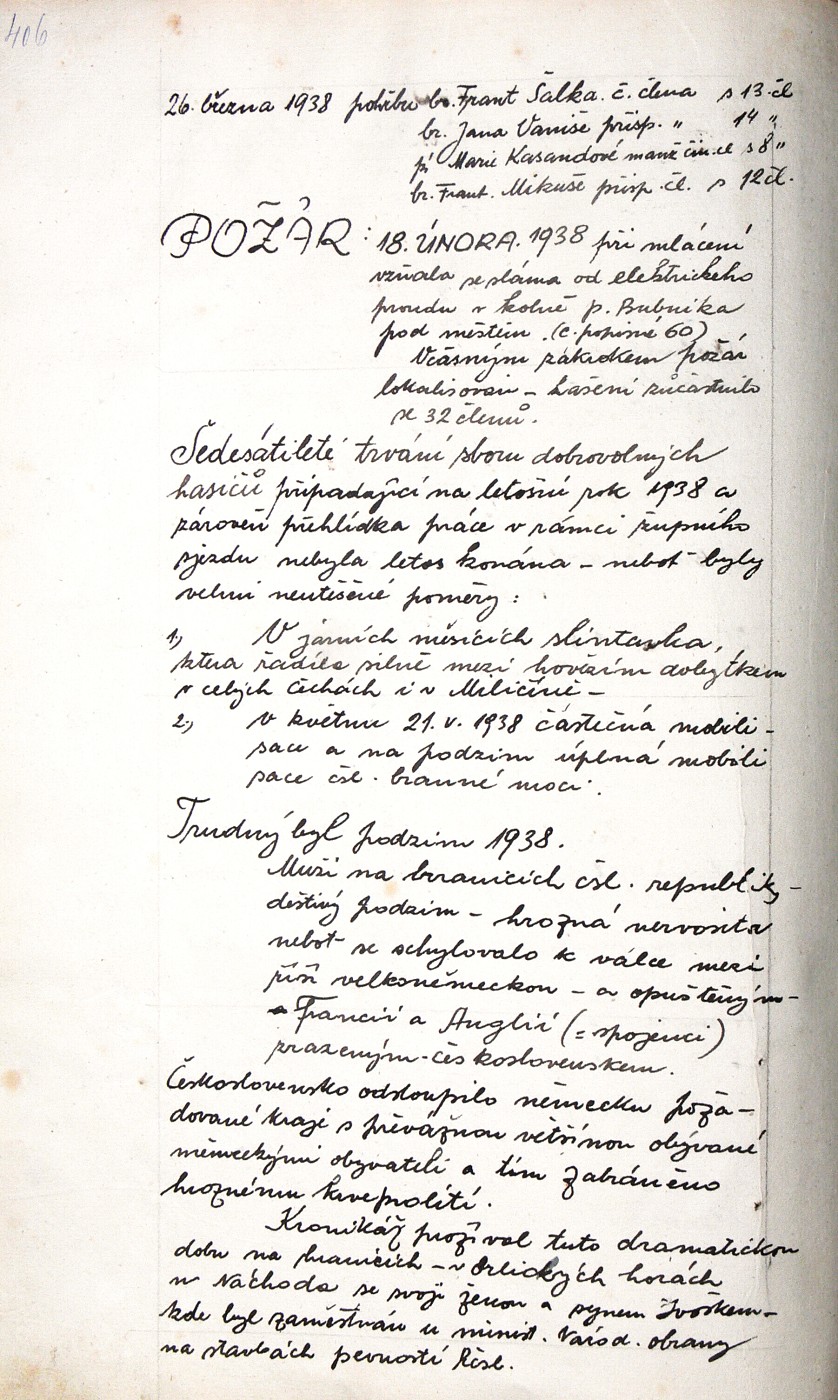 406
26. března 1938 pohřbu br. Frant Šalka. č. člena s 13 čl
br. Jana Vaniše přisp. " 14 "
pí Marie Kasandové manž čin. čl s 8 "
br. Frant. Mikuše přisp. čl. s 12 čl.
POŽÁR: 18. ÚNORA. 1938 při mlácení
vzňala se sláma od elektrického
proudu v kolně p. Bubníka
pod městem. (č. popisné 60)
Včasným zákrokem požár
lokalisován – hašení zůčastnilo
se 32 členů.
Šedesátileté trvání sboru dobrovolných
hasičů připadající na letošní rok 1938 a
zároveň přehlídka práce v rámci župního
sjezdu nebyla letos konána – neboť byly
velmi neutěšené poměry:
1.) V jarních měsících slintavka,
ktera řádila silně mezi hovězím dobytkem
v celých Čechách i v Miličíně –
2.) v květnu 21. V. 1938 částečná mobili-
sace a na podzim úplná mobili
sace čsl. branné moci.
Trudný byl podzim 1938.
Muži na hranicích čsl. republiky –
deštivý podzim – hrozná nervosita
neboť se schylovalo k válce mezi
říší velkoněmeckou – a opuštěným –
Francií a Anglií (= spojenci)
zrazeným – československem.
Československo odstoupilo německu požá-
dované kraje s převážnou většinou obývané
německými obyvateli a tím zabráněno
hroznému krveprolití.
Kronikář prožíval tuto dramatickou
dobu na hranicích – v Orlických horách
u Náchoda se svojí ženou a synem Ivoškem –
kde byl zaměstnán u minist. Národ. obrany
na stavbách pevností Rčsl.